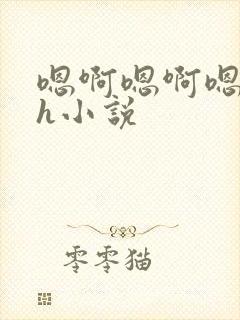 嗯啊嗯啊嗯
h小说
零零猫